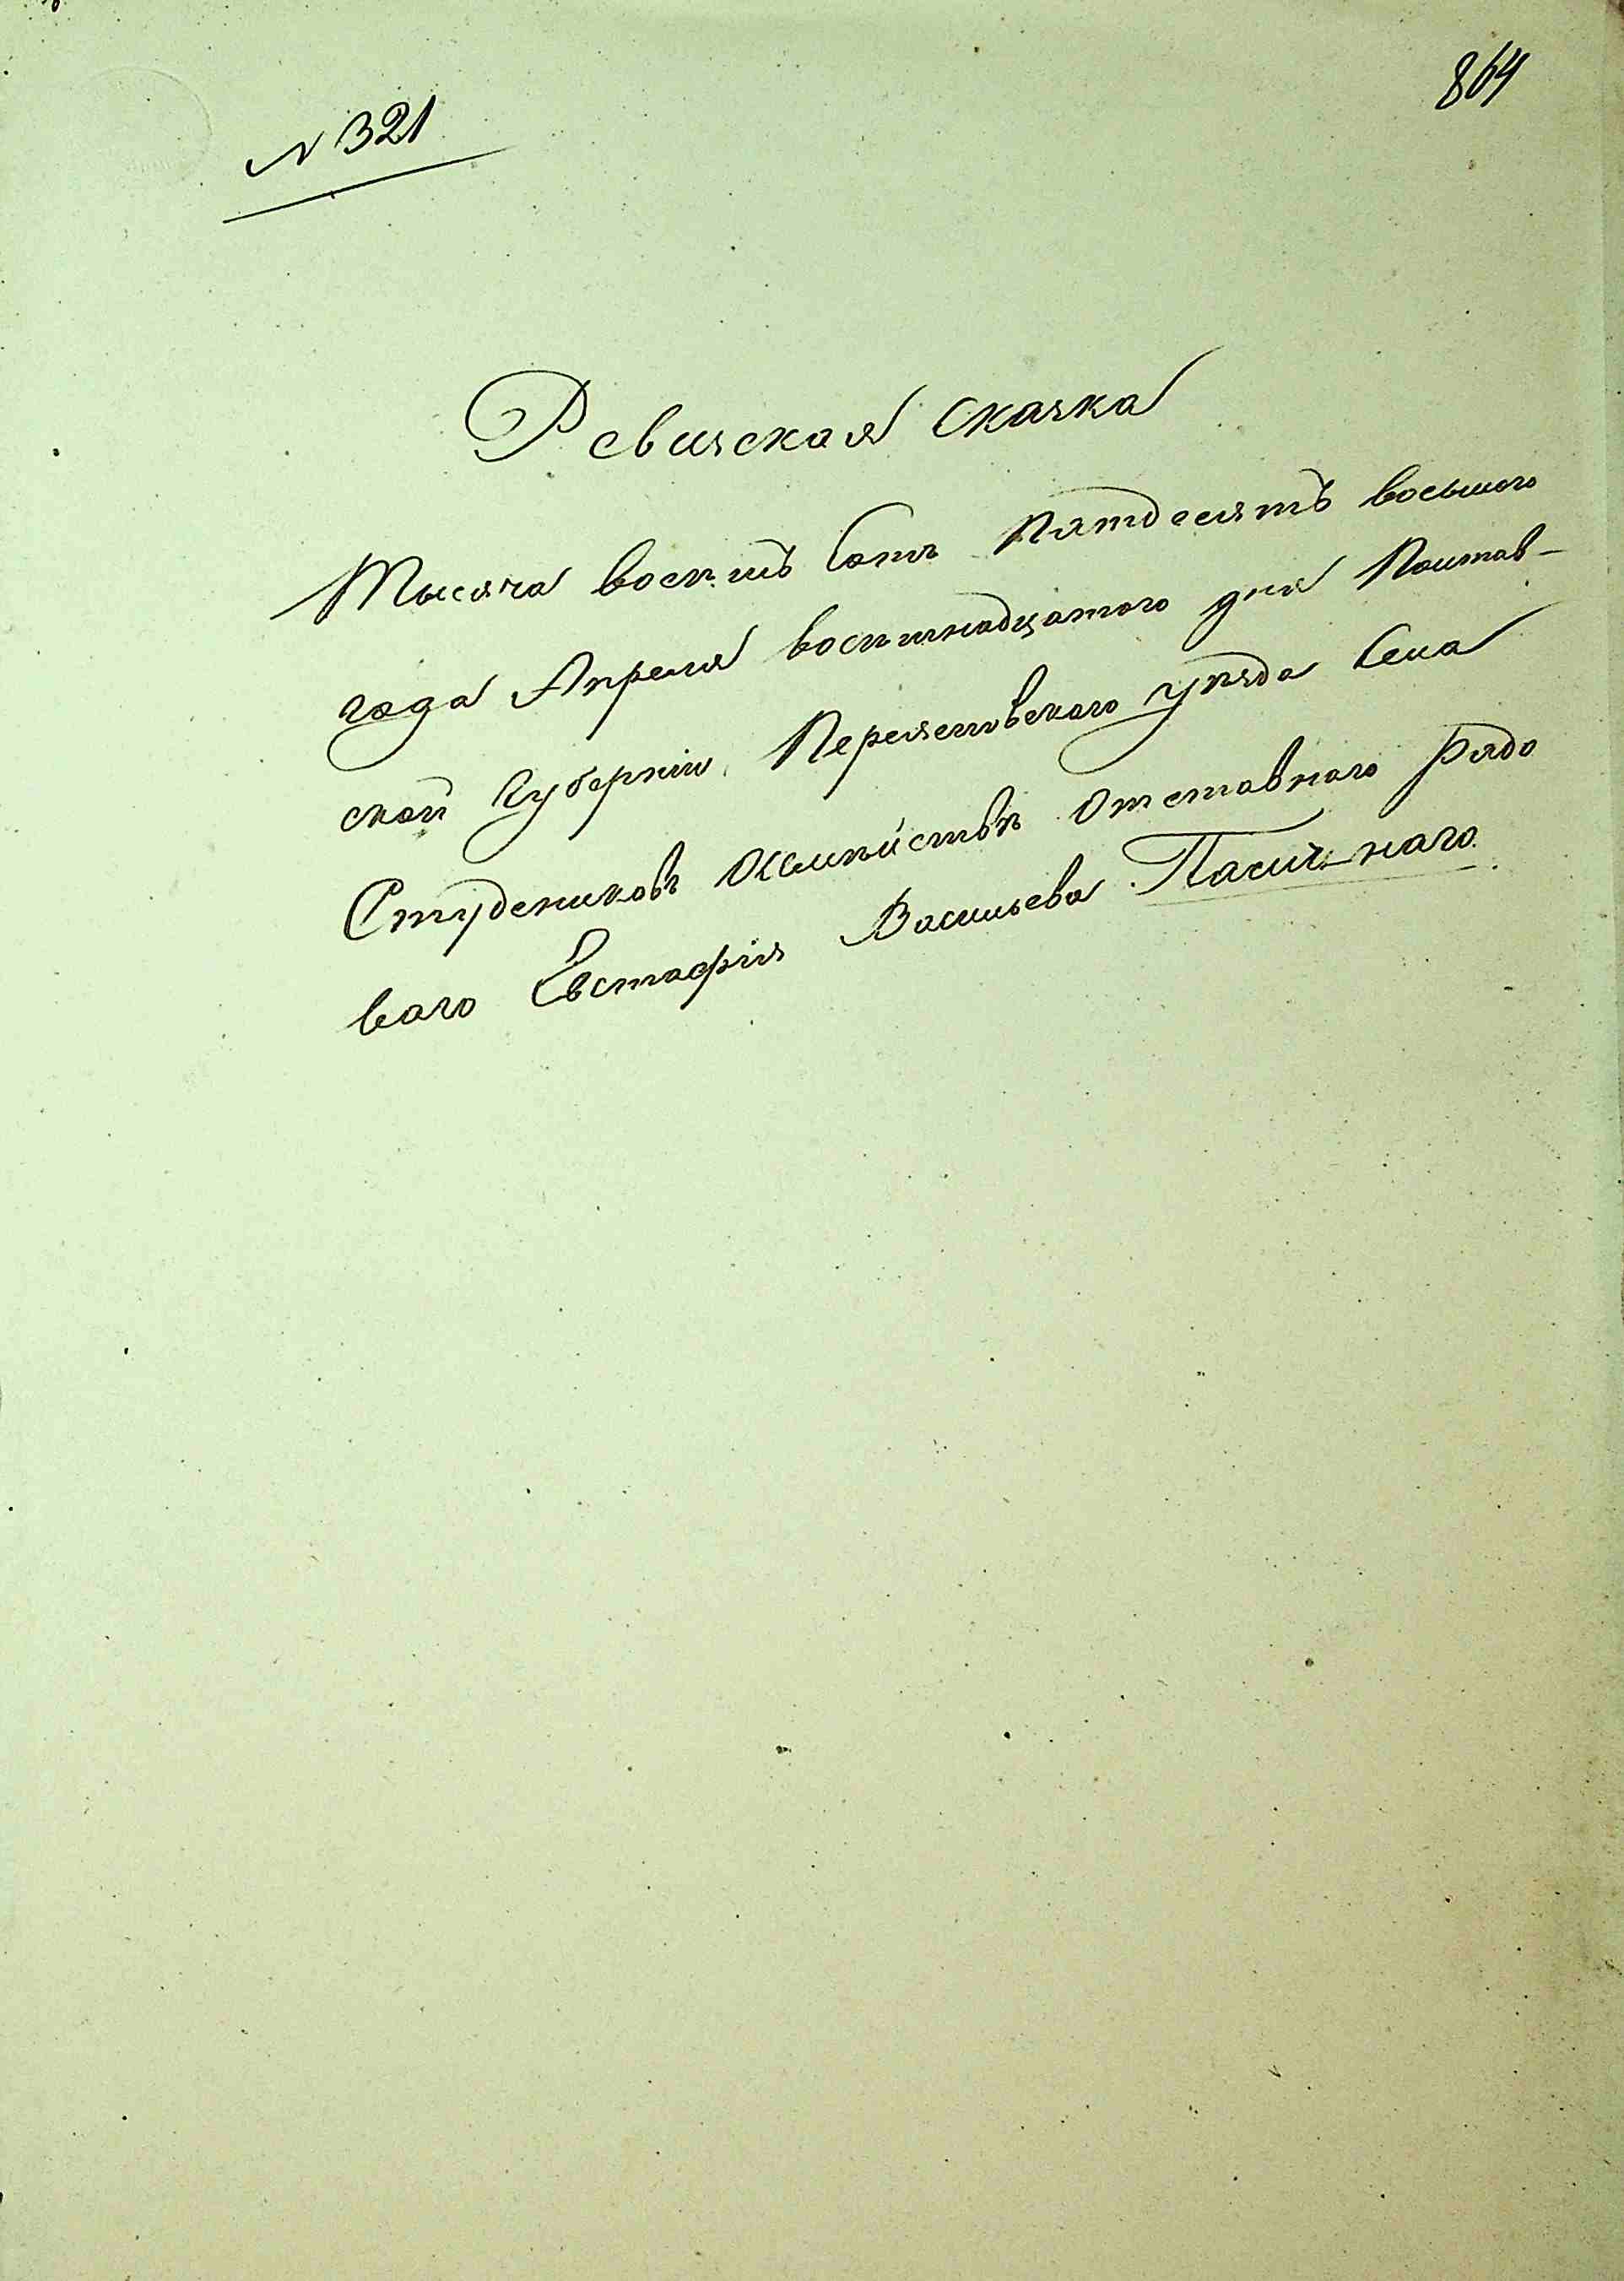 864
N 321
Ревизская сказка
Тысяча восемь сотъ пятдесятъ восьмого
года Апреля восемнадцатого дня Полтав-
ской Губерніи Переяславского уезда Села
Студениковъ отставного рядо
ваго Евстафія Васильева Пасичнаго